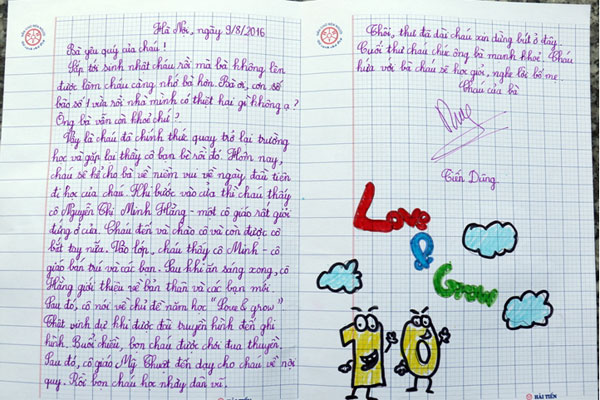 Hà Nội, ngày 9/8/2016
Bà yêu quý của cháu!
Sắp tới sinh nhật cháu rồi mà bà không lên
được làm cháu càng nhớ bà hơn. Bà ơi, cơn số
bão số 1 vừa rồi nhà mình có thiệt hại gì không ạ?
Ông bà vẫn còn khoẻ chứ?
Vậy là cháu đã chính thức quay trở lại trường
học và gặp lại thầy cô bạn bè rồi đó. Hôm nay,
cháu sẽ kể cho bà về niềm vui về ngày đầu tiên
đi học của cháu. Khi bước vào cửa thì cháu thấy
cô Nguyễn Thị Minh Hằng - một cô giáo rất giỏi
đứng ở cửa. Cháu đến và chào cô và còn được cô
bắt tay nữa. Vào lớp, cháu thấy cô Minh - cô
giáo bán trú và các bạn. Sau khi ăn sáng xong, cô
Hằng giới thiệu về bản thân và các bạn mới.
Sau đó, cô nói về chủ đề năm học "Love & grow"
Thật vinh dự khi được đài truyền hình đến ghi
hình. Buổi chiều, bọn cháu được chơi đua thuyền.
Sau đó, cô giáo Mỹ Thuật đến dạy cho cháu về nội
quy. Rồi bọn cháu học nhảy dân vũ.
Thôi, thư đã dài cháu xin dừng bút ở đây.
Cuối thư cháu chúc ông bà mạnh khoẻ. Cháu
hứa với bà cháu sẽ học giỏi, nghe lời bố mẹ...
Cháu của bà
Tiến Dũng
Love
&
Grow
10
HẢI TIẾN